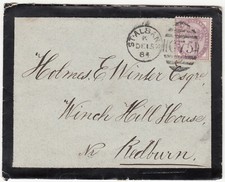 ST ALBANS
K
DE 15
84
Holmes, E. Winter Esqre
Winch Hill House,
Nr Redburn.